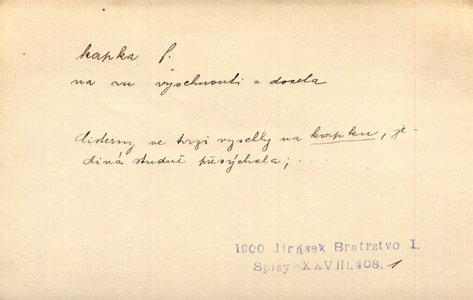 kapka f.
na ni vyschnouti = docela
Cisterny ve tvrzi vyschly na kapku, je-
diná studně přesýchala; . . .
1900 Jirásek Bratrstvo I.
Spisy XXVIII.408. 1